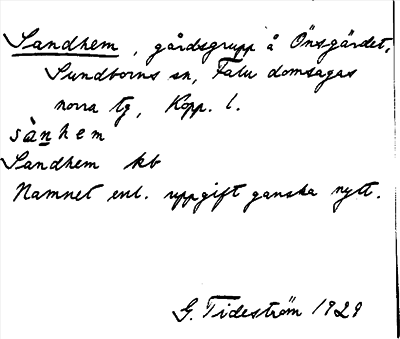 Sandhem, gårdsgrupp å Önsgärdet,
Sundborns sn, Falu domsagas
norra tg, Kopp. l.
sànhem
Sandhem kb
Namnet enl. uppgift ganska nytt.
G. Tideström 1929